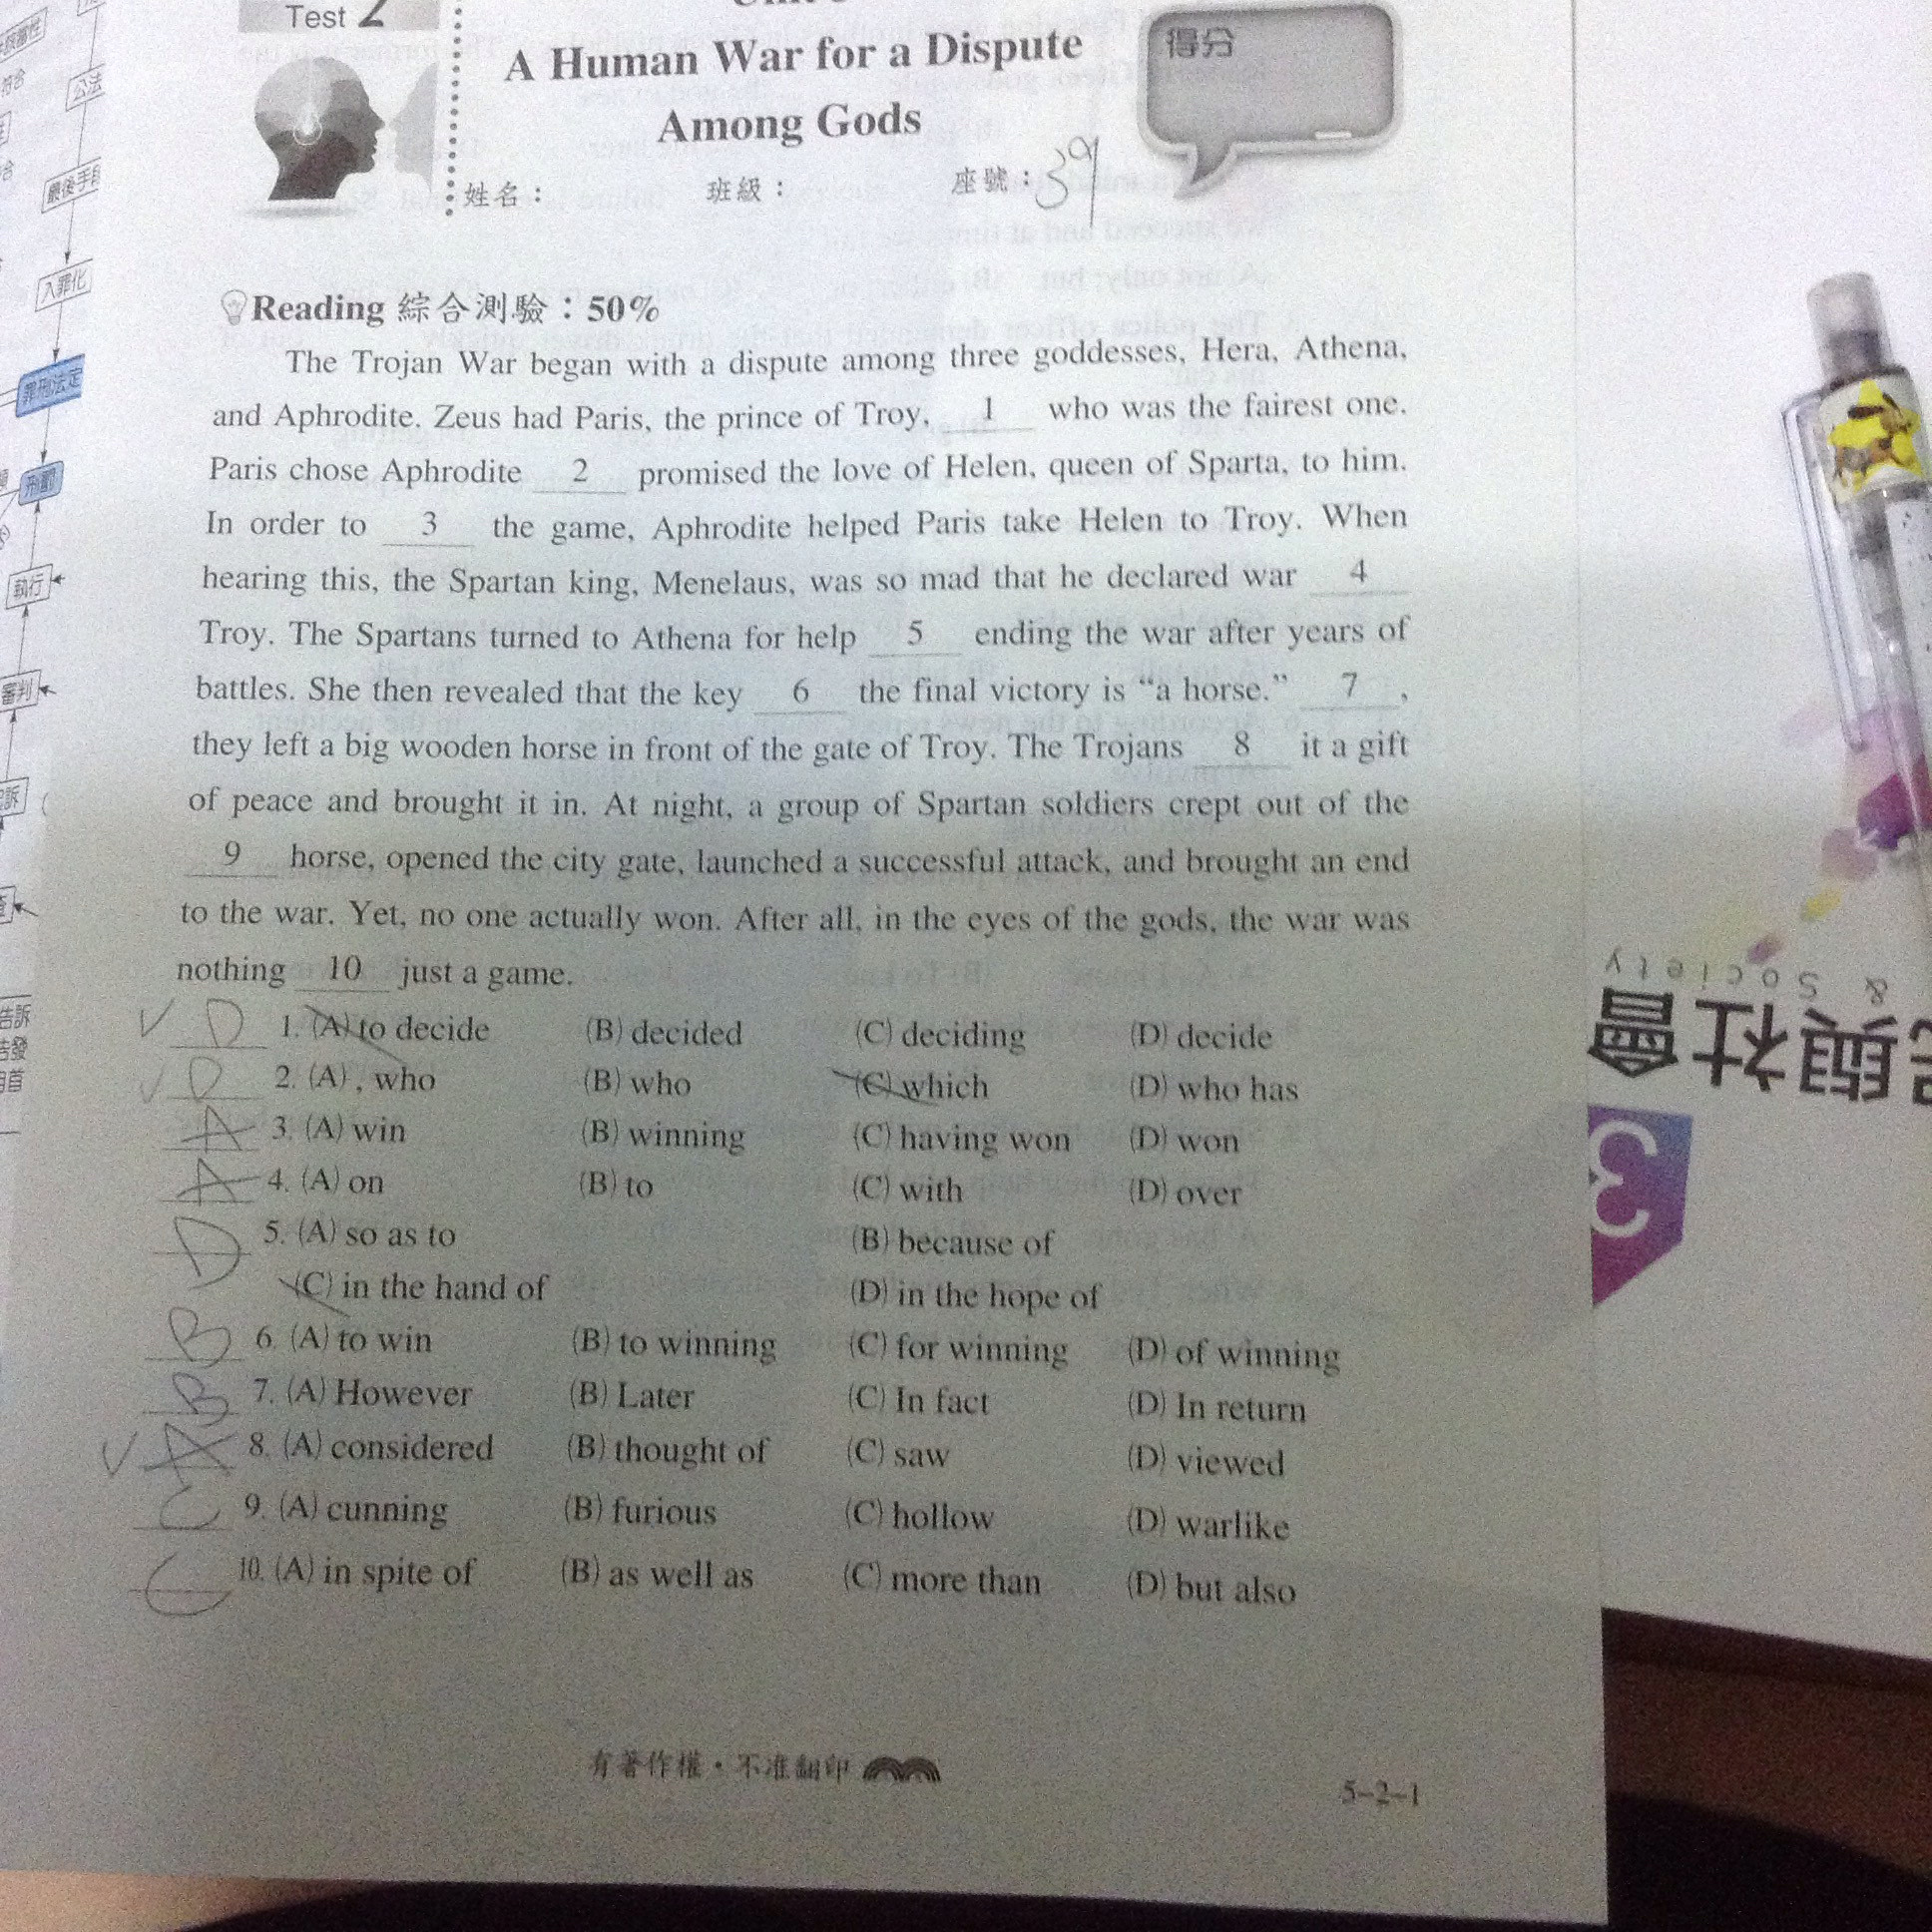 Test 2
A Human War for a Dispute
Among Gods
得分
姓名： 班級： 座號：39
Reading 綜合測驗：50%
The Trojan War began with a dispute among three goddesses, Hera, Athena,
and Aphrodite. Zeus had Paris, the prince of Troy, 1 who was the fairest one.
Paris chose Aphrodite 2 promised the love of Helen, queen of Sparta, to him.
In order to 3 the game, Aphrodite helped Paris take Helen to Troy. When
hearing this, the Spartan king, Menelaus, was so mad that he declared war 4
Troy. The Spartans turned to Athena for help 5 ending the war after years of
battles. She then revealed that the key 6 the final victory is “a horse.” 7 ,
they left a big wooden horse in front of the gate of Troy. The Trojans 8 it a gift
of peace and brought it in. At night, a group of Spartan soldiers crept out of the
9 horse, opened the city gate, launched a successful attack, and brought an end
to the war. Yet, no one actually won. After all, in the eyes of the gods, the war was
nothing 10 just a game.
D 1. (A) to decide (B) decided (C) deciding (D) decide
D 2. (A) , who (B) who (C) which (D) who has
A 3. (A) win (B) winning (C) having won (D) won
A 4. (A) on (B) to (C) with (D) over
D 5. (A) so as to (B) because of
(C) in the hand of (D) in the hope of
B 6. (A) to win (B) to winning (C) for winning (D) of winning
B 7. (A) However (B) Later (C) In fact (D) In return
A 8. (A) considered (B) thought of (C) saw (D) viewed
C 9. (A) cunning (B) furious (C) hollow (D) warlike
C 10. (A) in spite of (B) as well as (C) more than (D) but also
有著作權・不准翻印
5-2-1
公法
最後手段
入罪化
罪刑法定
刑罰
執行
審判
告訴
告發
自首
& Society
與社會
3